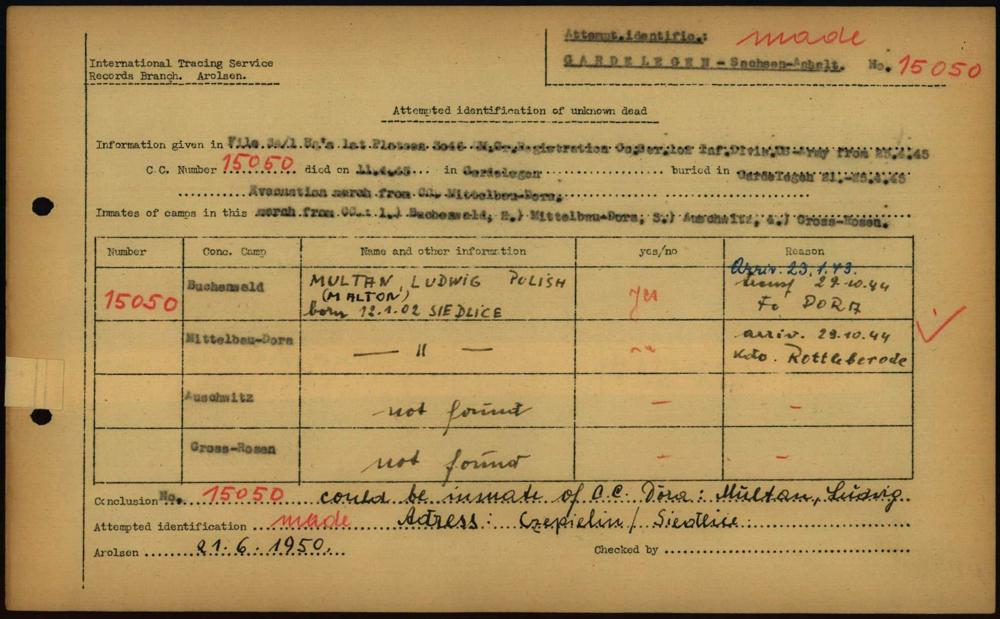 International Tracing Service
Records Branch. Arolsen.
Attempt.identific.: made
GARDELEGEN - Sachsen-Anhalt. No. 15050
Attempted identification of unknown dead
Information given in File Sa/1 from 25.4.45
C.C. Number 15050 died on 11.4.45 in Gardelegen buried in Gardelegen 21.-25.4.45
Evacuation march from CC. Mittelbau-Dora.
Inmates of camps in this march from CC.: 1.) Buchenwald, 2.) Mittelbau-Dora, 3.) Auschwitz, 4.) Gross-Rosen.
Number Conc. Camp Name and other information yes/no Reason
15050 Buchenwald MULTAN, LUDWIG POLISH yes Arriv. 23.1.43.
(MALTON) transf 29.10.44
born 12.1.02 SIEDLICE To DORA
Mittelbau-Dora — " — arriv. 29.10.44
Kdo. Rottleberode
Auschwitz not found — —
Gross-Rosen not found — —
Conclusion No. 15050 could be inmate of C.C. Dora: Multan, Ludwig
Attempted identification made Adress: Czepielin / Siedlice.
Arolsen 21.6.1950. Checked by